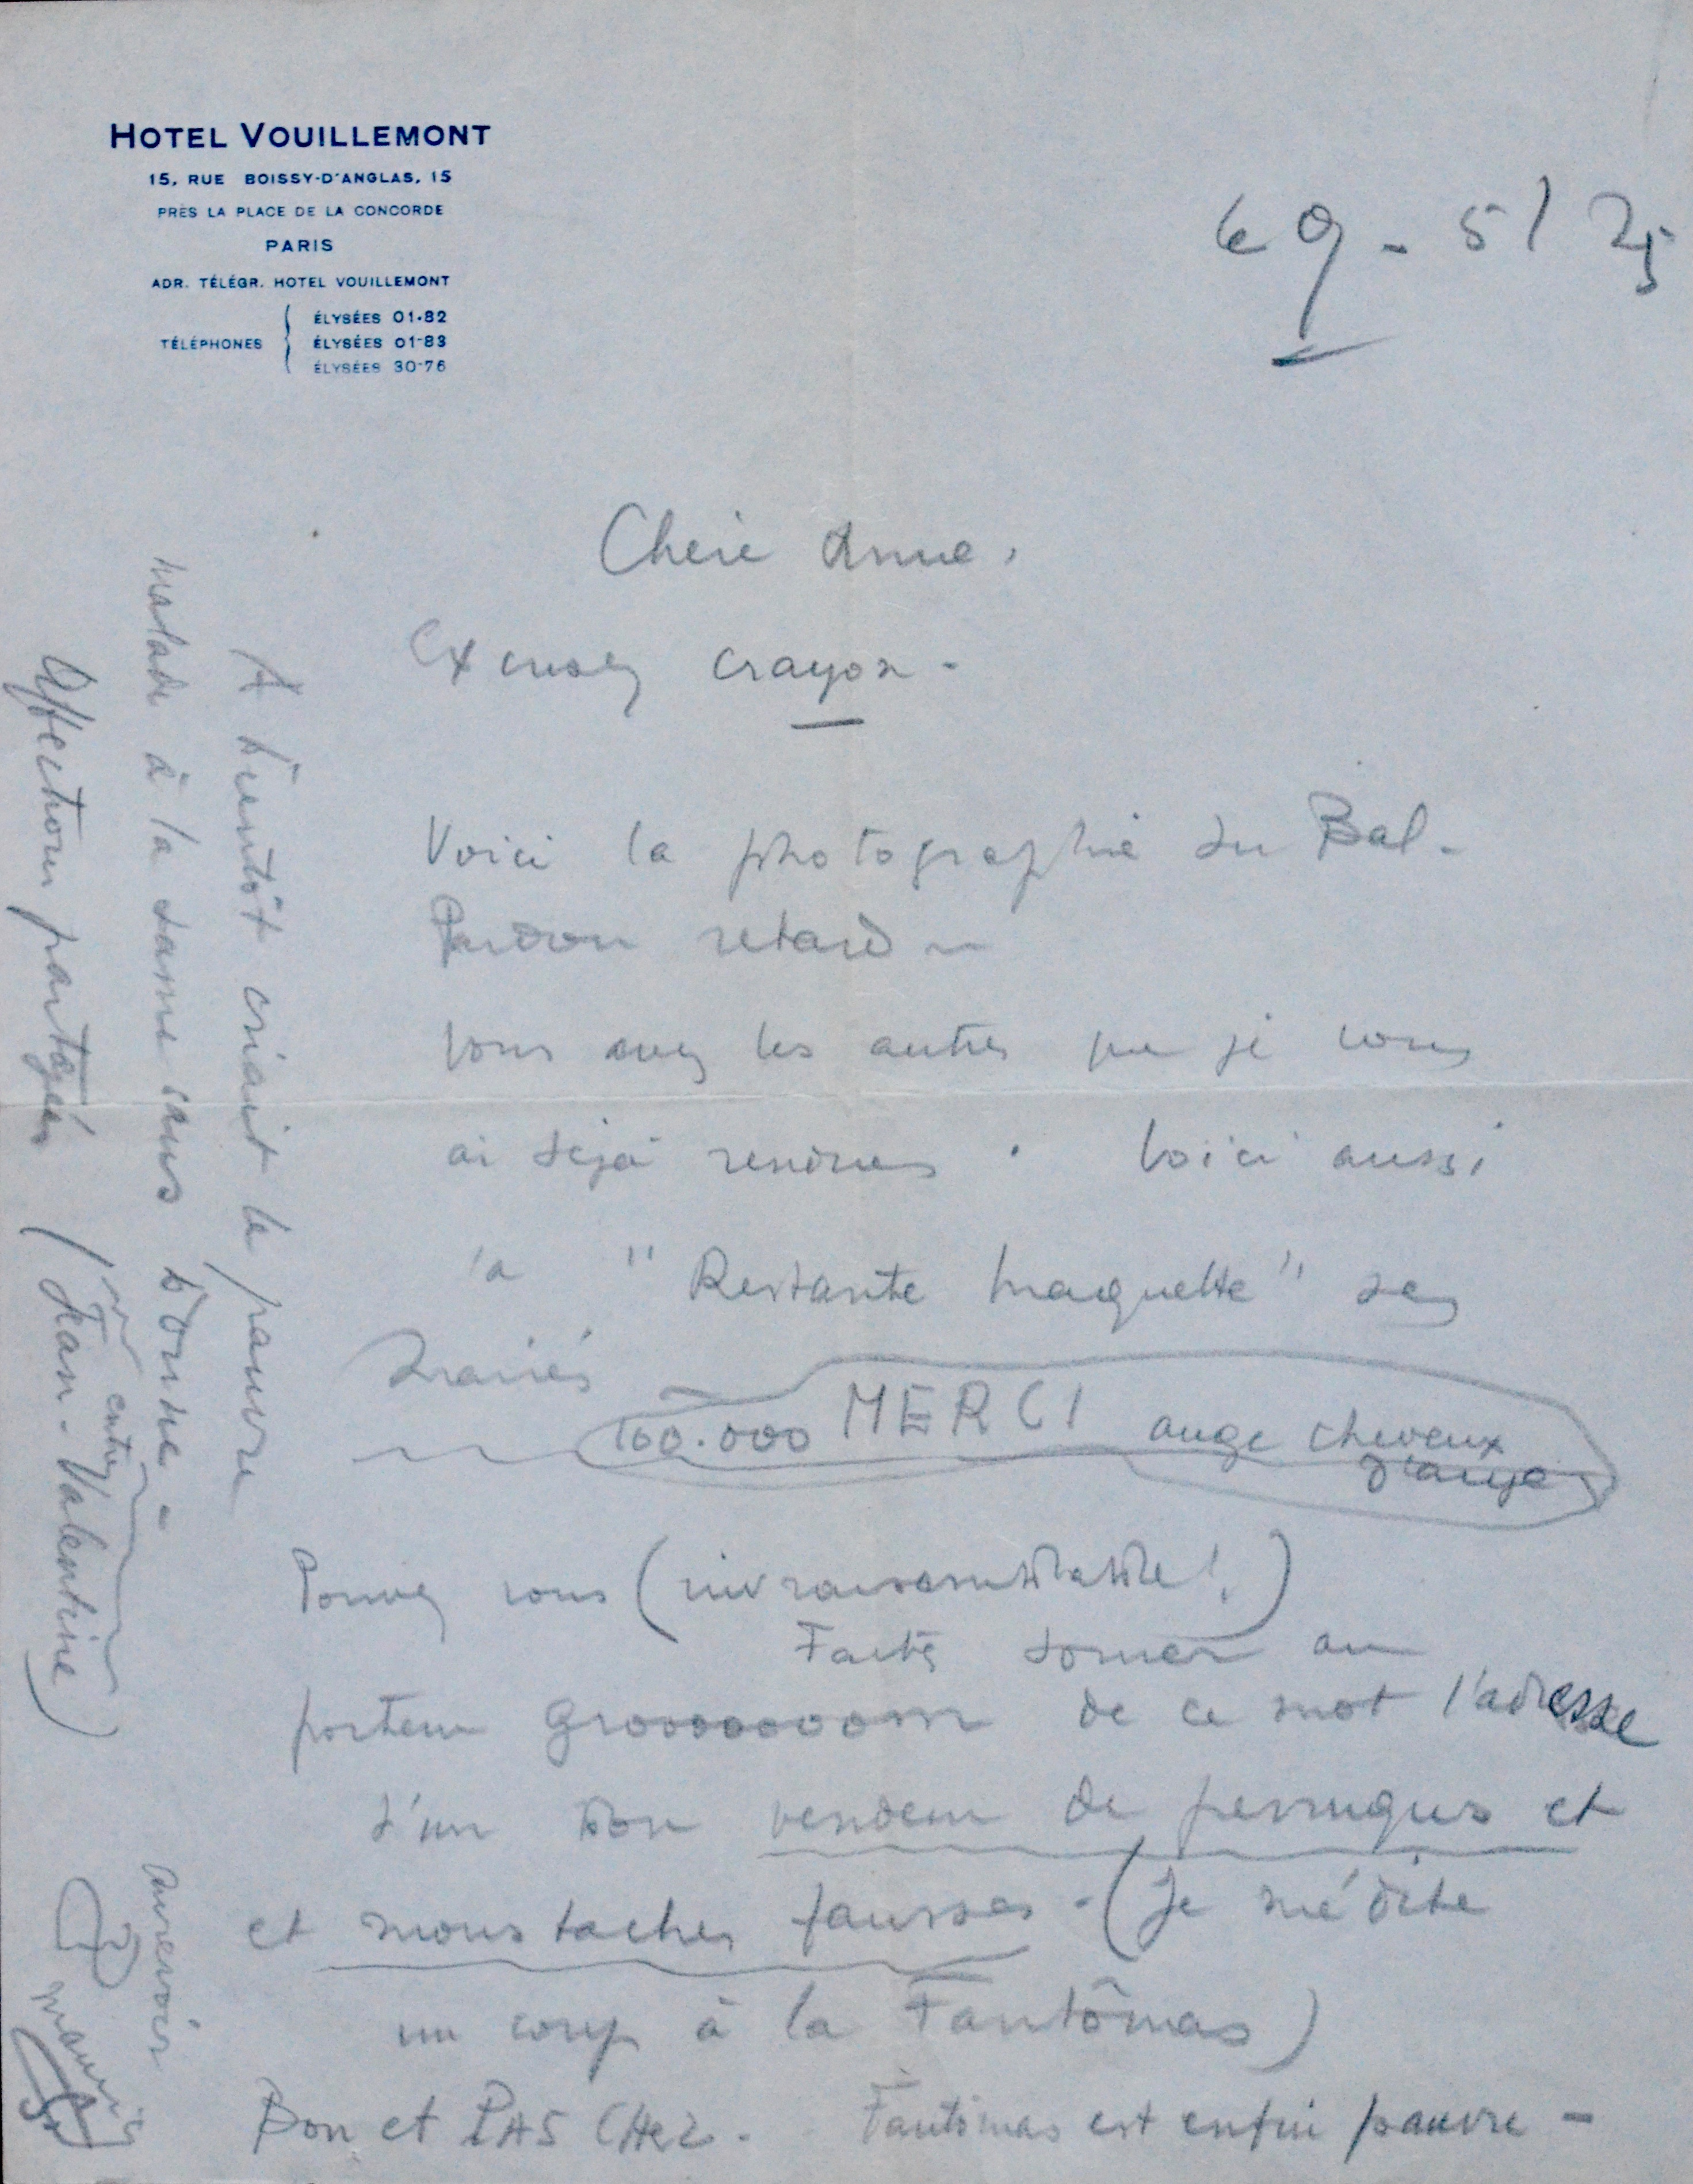 HOTEL VOUILLEMONT
15, RUE BOISSY-D'ANGLAS, 15
PRÈS LA PLACE DE LA CONCORDE
PARIS
ADR. TÉLÉGR. HOTEL VOUILLEMONT
TÉLÉPHONES
ÉLYSÉES 01-82
ÉLYSÉES 01-83
ÉLYSÉES 30-76
le 9 - 5 / 25
Chère Anne,
Excusez crayon -
Voici la photographie du Bal -
Pardon retard -
vous avez les autres que je vous
ai déjà rendues . Voici aussi
la "Restante maquette" des
100.000 MERCI ange cheveux
d'ange
Pouvez vous (invraisemblable!)
Faites donner au
porteur grooooooom de ce mot l'adresse
d'un bon vendeur de perruques et
et moustaches fausses - (Je médite
un coup à la Fantômas)
Bon et PAS CHER - Fantômas est enfin pauvre -
A bientôt criait le pauvre
malade à la dame sans bonne -
Affections partagées (Jean - Valentine)
entre
aurevoir